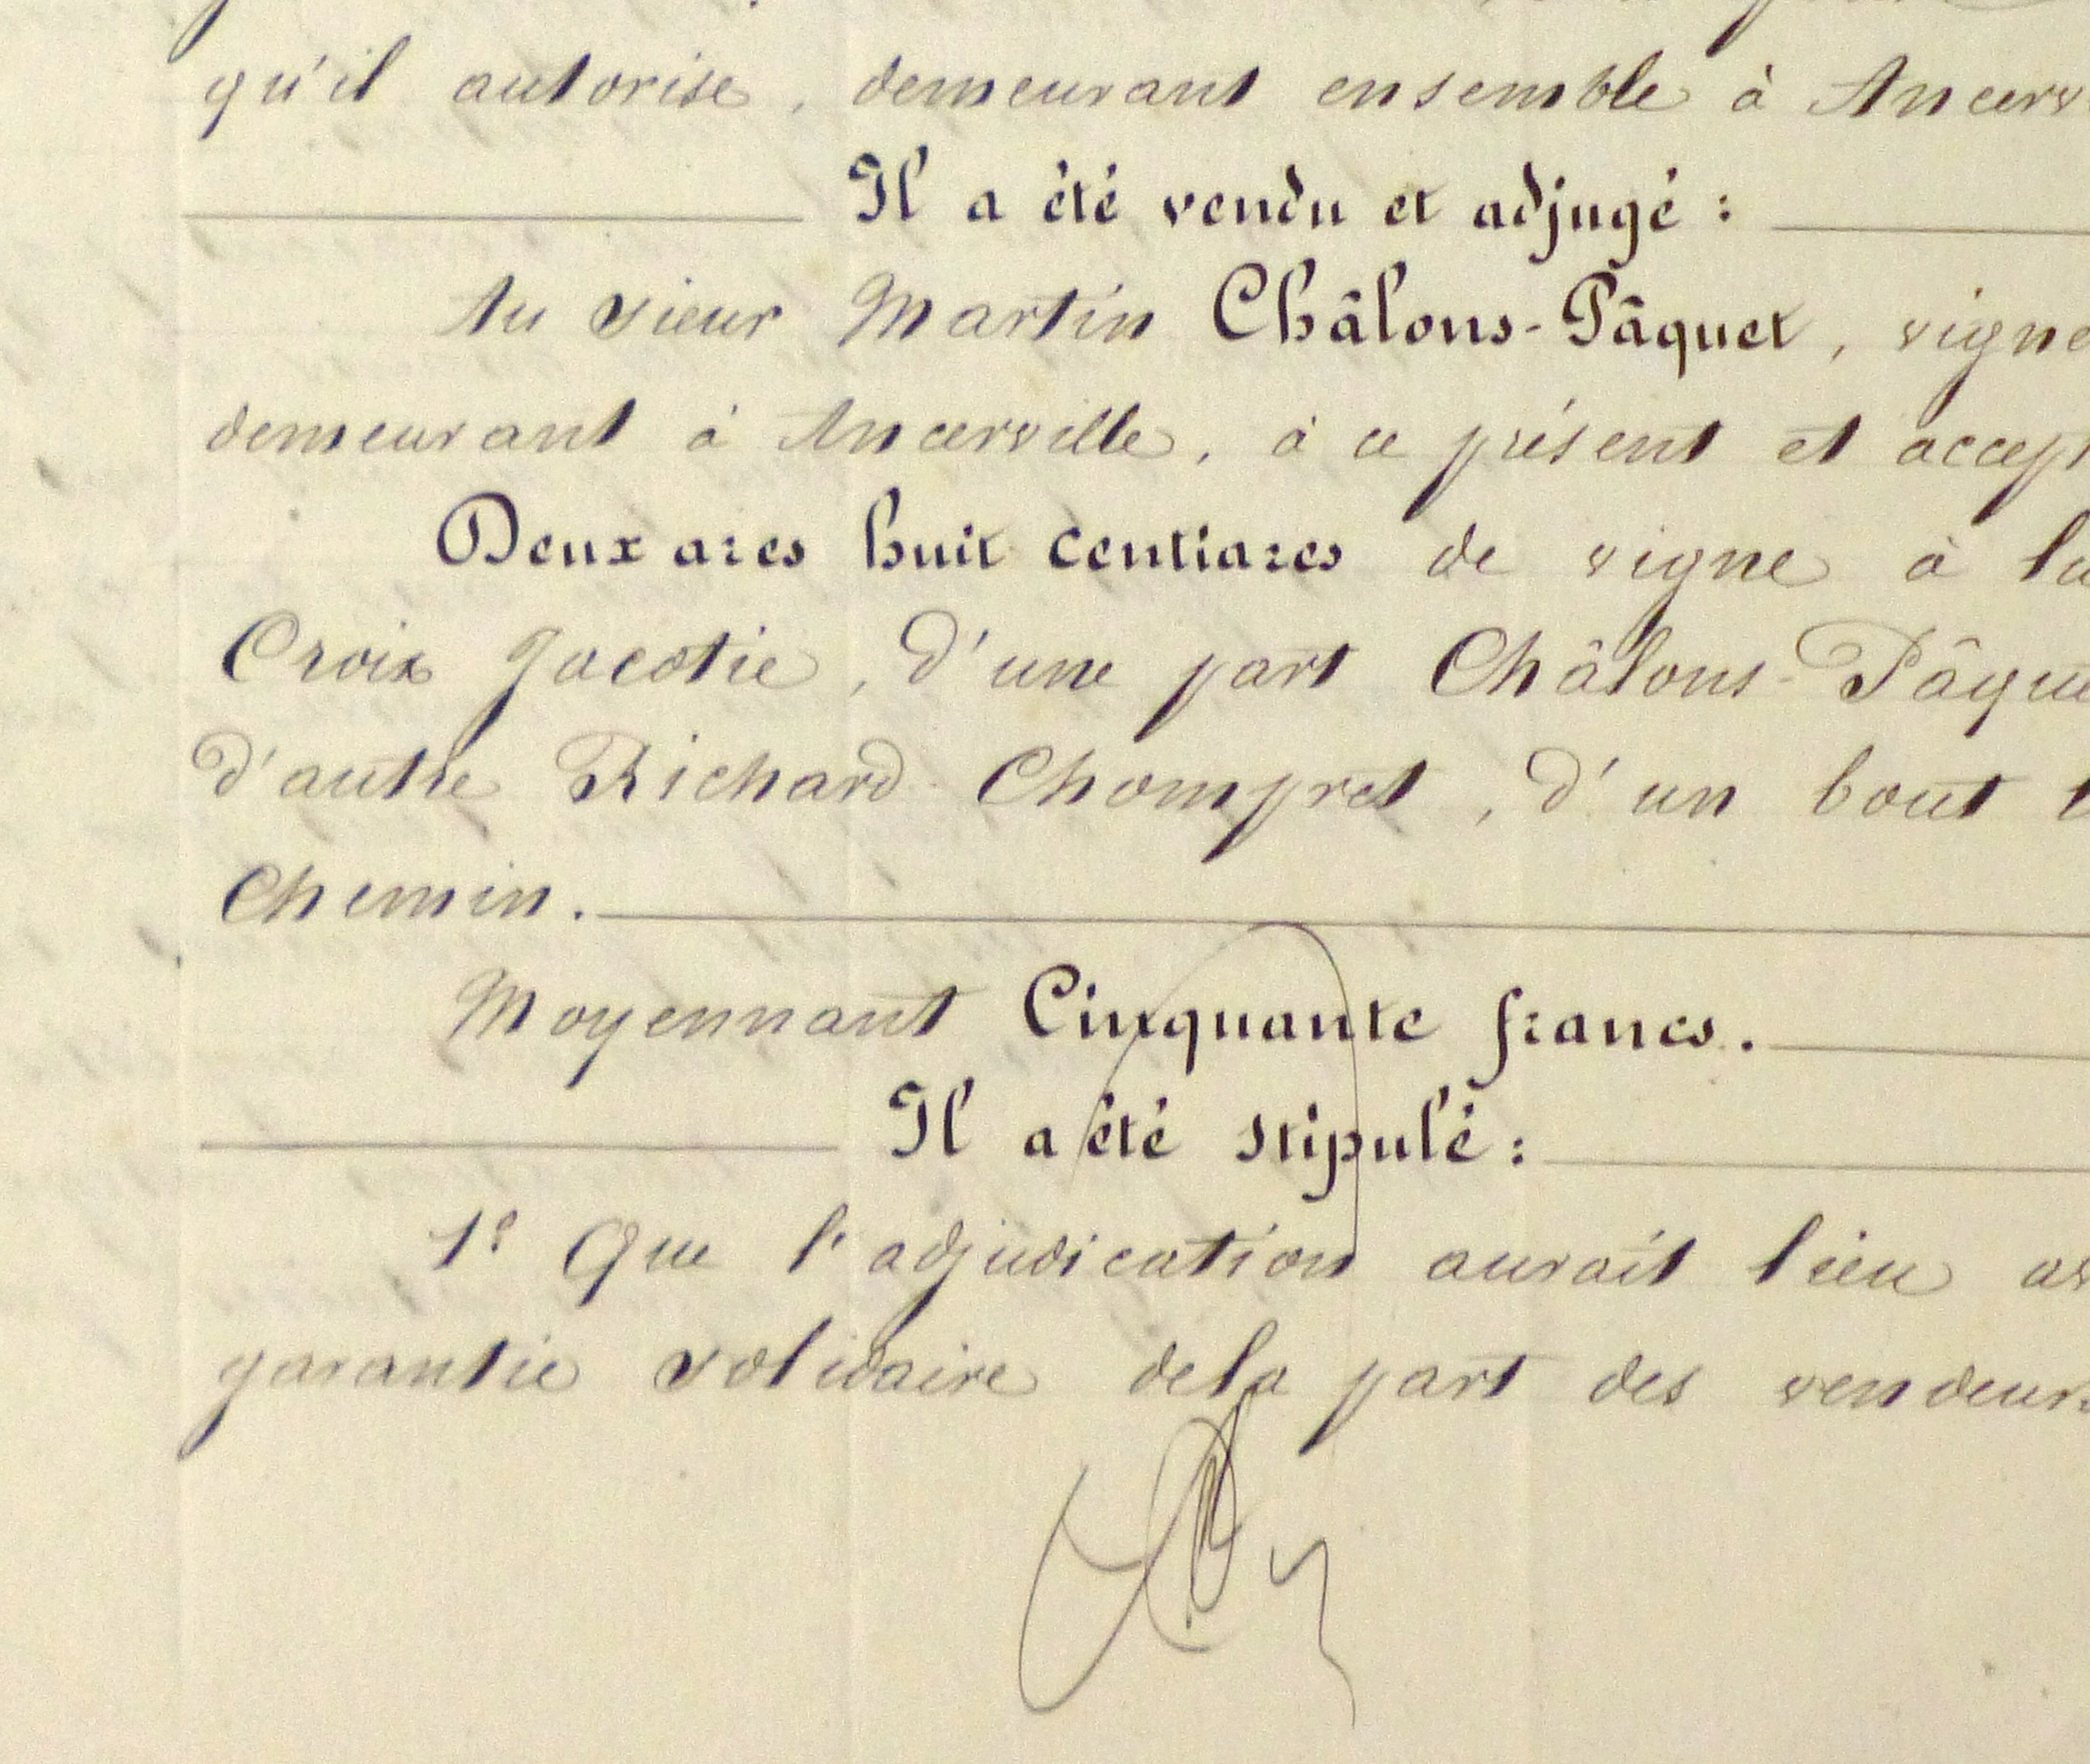 qu'il autorise, demeurant ensemble à Ancerv
Il a été vendu et adjugé :
Au sieur Martin Châlons-Pâquet, vigne
demeurant à Ancerville, à ce présent et accep
Deux ares huit centiares de vigne à la
Croix Jacotie, d'une part Châlons-Pâque
d'autre Richard Chompret, d'un bout
chemin.
Moyennant Cinquante francs.
Il a été stipulé :
1º Que l'adjudication aurait lieu av
garantie solidaire de la part des vendeurs